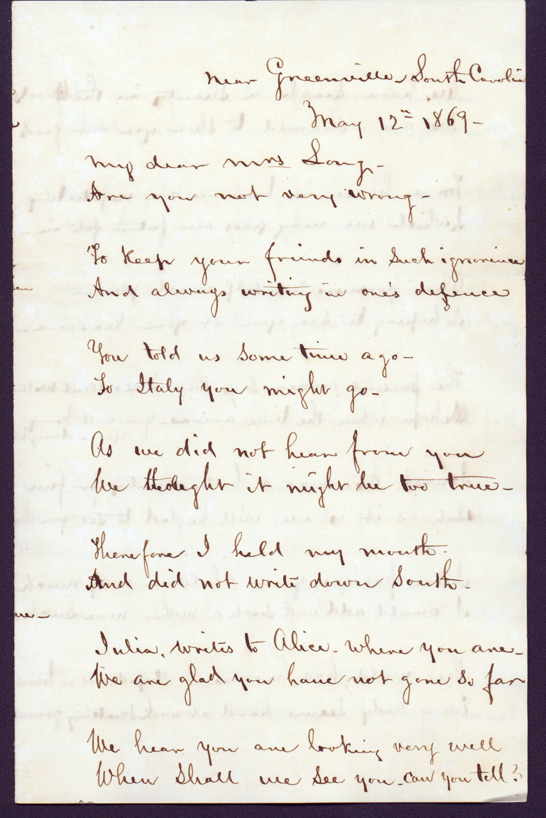 near Greenville, South Carolin
May 12th 1869-
My dear Mrs Long-
Are you not very wrong-
To keep your friends in such ignorance
And always writing in ones defence
You told us some time ago-
To Italy you might go-
As we did not hear from you
We thought it might be too true-
Therefore I held my mouth-
And did not write down South-
Julia, writes to Alice- where you are-
We are glad you have not gone so far
We hear you are looking very well
When shall we see you- can you tell?